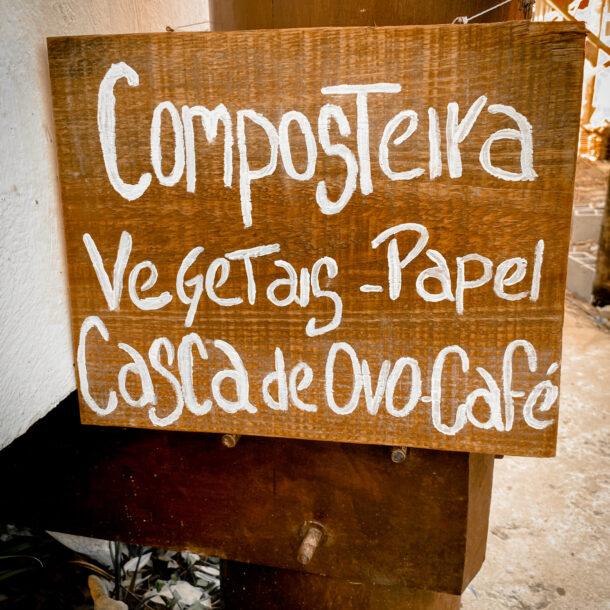 Composteira
Vegetais - Papel
Casca de Ovo - Café